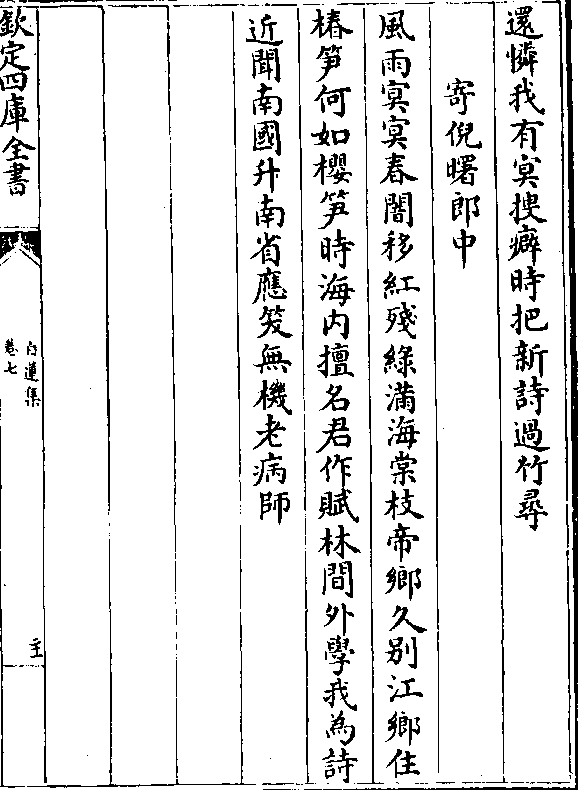 還憐我有冥搜癖時把新詩過竹尋
寄倪曙郎中
風雨冥冥春闇移紅殘綠滿海棠枝帝鄉久別江鄉住
椿笋何如櫻笋時海内擅名君作賦林間外學我為詩
近聞南國升南省應笑無機老病師
欽定四庫全書
白蓮集
卷七